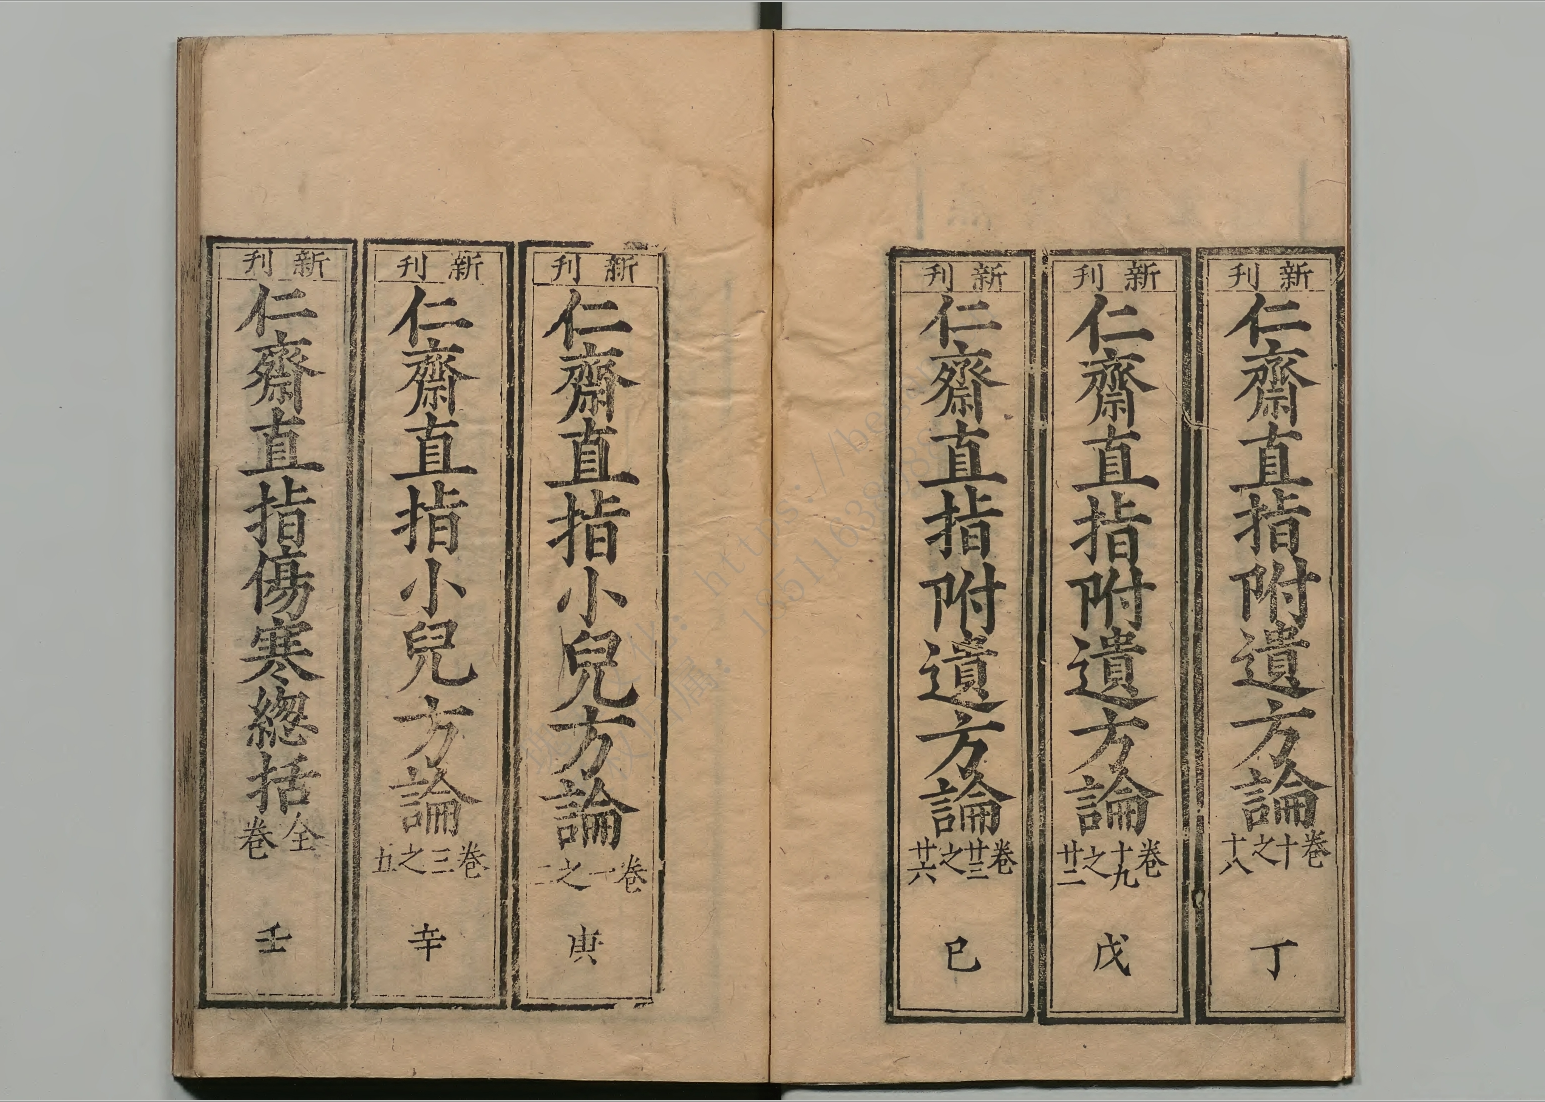 新刊
仁齋直指附遺方論
卷十之十八
丁
新刊
仁齋直指附遺方論
卷十九之廿二
戊
新刊
仁齋直指附遺方論
卷廿三之廿六
巳
新刊
仁齋直指小兒方論
卷一之二
庚
新刊
仁齋直指小兒方論
卷三之五
辛
新刊
仁齋直指傷寒總括
全卷
壬